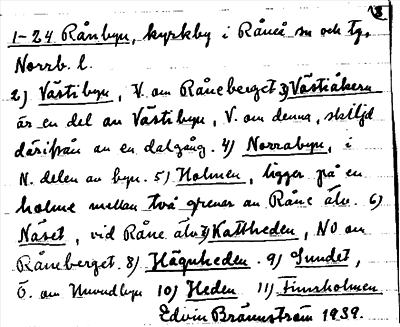 13
1-24 Rånbyn, kyrkby i Råneå sn och tg,
Norrb. l.
2) Västibyn, V. om Råneberget 3) Västiåkern
är en del av Västibyn, V. om denna, skiljd
därifrån av en dalgång. 4) Norrabyn, i
N. delen av byn. 5) Holmen, ligger på en
holme mellan två grenar av Råne älv. 6)
Näset, vid Råne älv 7) Kattheden, NO om
Råneberget. 8) Hägnheden. 9) Sundet,
Ö. om Huvudbyn 10) Heden 11) Finnholmen
Edvin Brännström 1939.